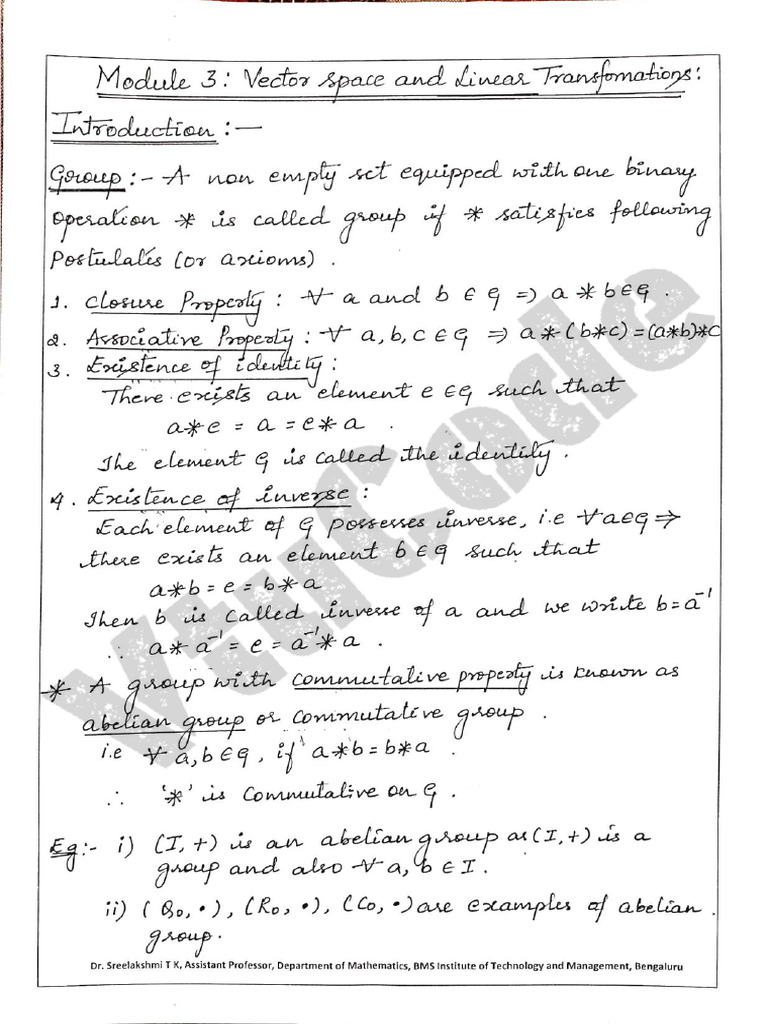 Module 3: Vector space and Linear Transfomations:
Introduction :—
Group :- A non empty set equipped with one binary
operation * is called group if * satisfies following
Postulates (or axioms) .
1. Closure Property : ∀ a and b ∈ G ⇒ a * b ∈ G .
2. Associative Property : ∀ a, b, c ∈ G ⇒ a * (b*c) = (a*b)*c
3. Existence of identity :
There exists an element e ∈ G such that
a * e = a = e * a .
The element G is called the identity .
4. Existence of inverse :
Each element of G possesses inverse, i.e ∀ a ∈ G ⇒
there exists an element b ∈ G such that
a * b = e = b * a
Then b is called inverse of a and we write b = a⁻¹
∴ a * a⁻¹ = e = a⁻¹ * a .
* A group with commutative property is known as
abelian group or commutative group .
i.e ∀ a, b ∈ G , if a * b = b * a .
∴ '*' is commutative on G .
Eg :- i) (I, +) is an abelian group as (I, +) is a
group and also ∀ a, b ∈ I .
ii) (Q₀, •) , (R₀, •) , (C₀, •) are examples of abelian
group .
Dr. Sreelakshmi T K, Assistant Professor, Department of Mathematics, BMS Institute of Technology and Management, Bengaluru
VtuCode